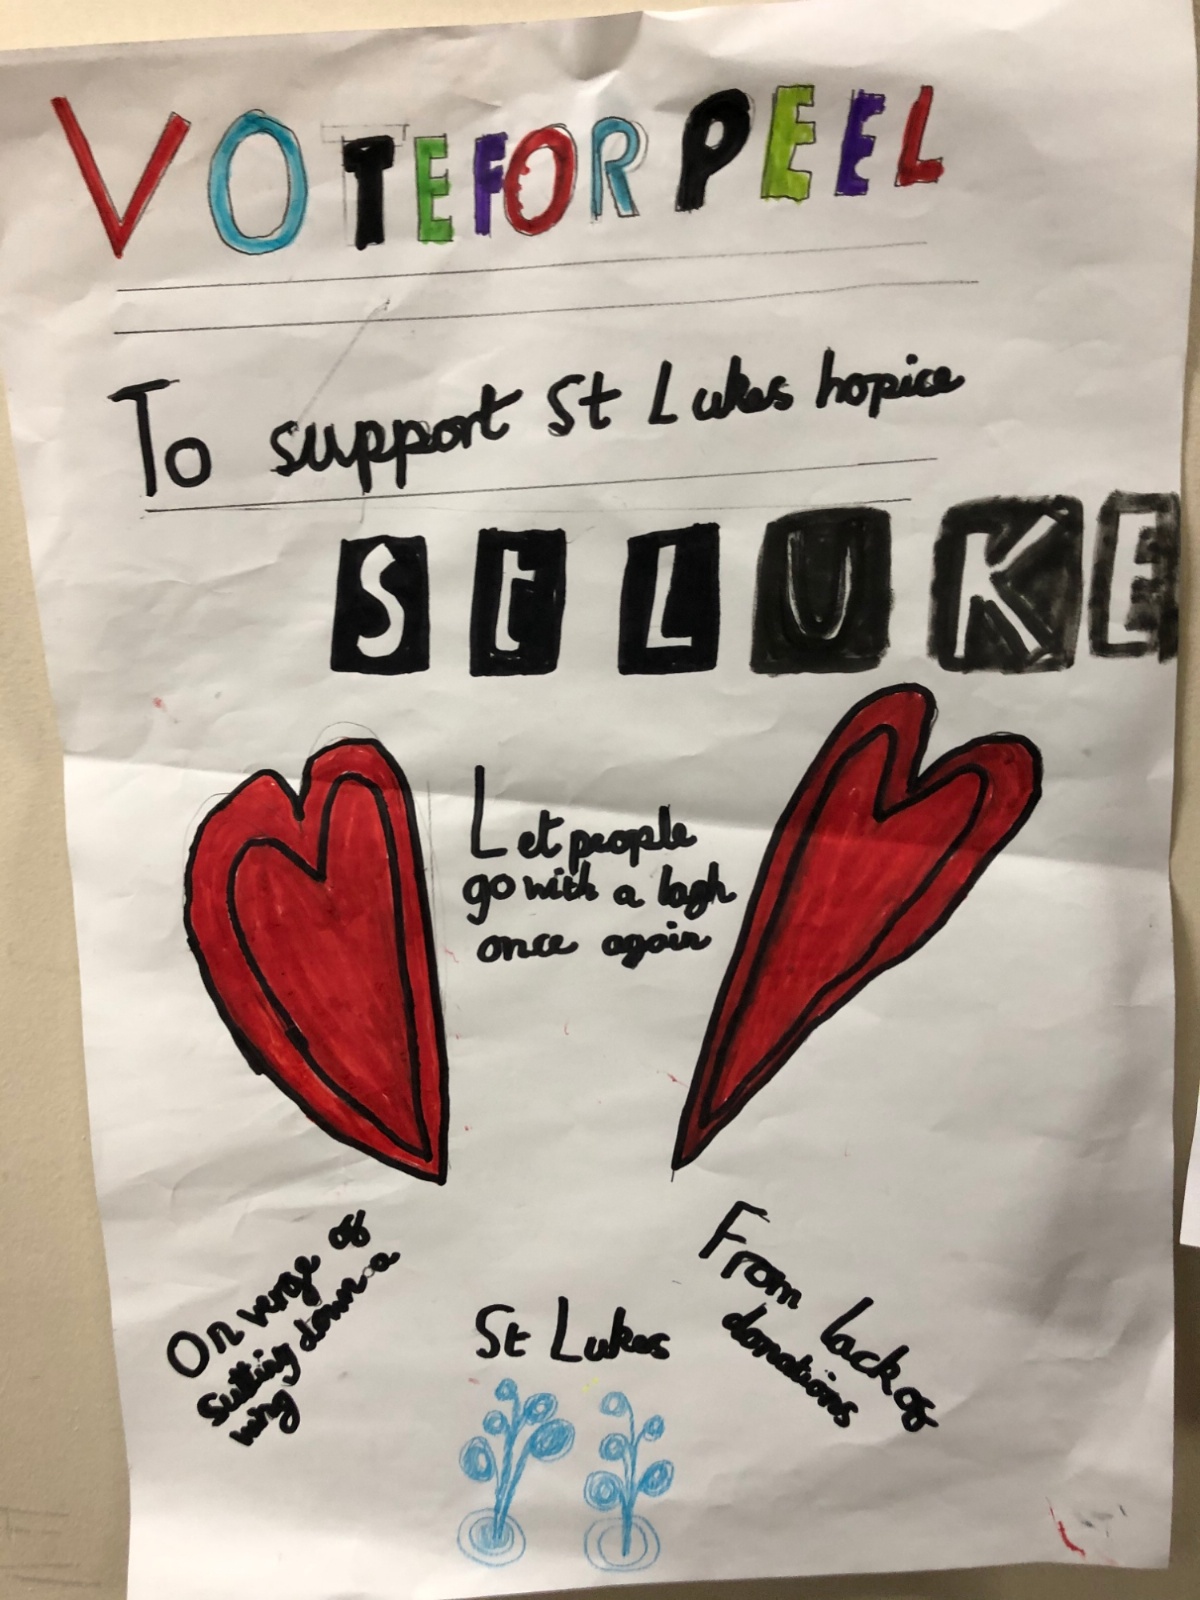 VOTE FOR PEEL
To support St Lukes hopice
St LUKE
Let people
go with a lagh
once again
On verge of
sutting down a
wing
From lack of
donations
St Lukes